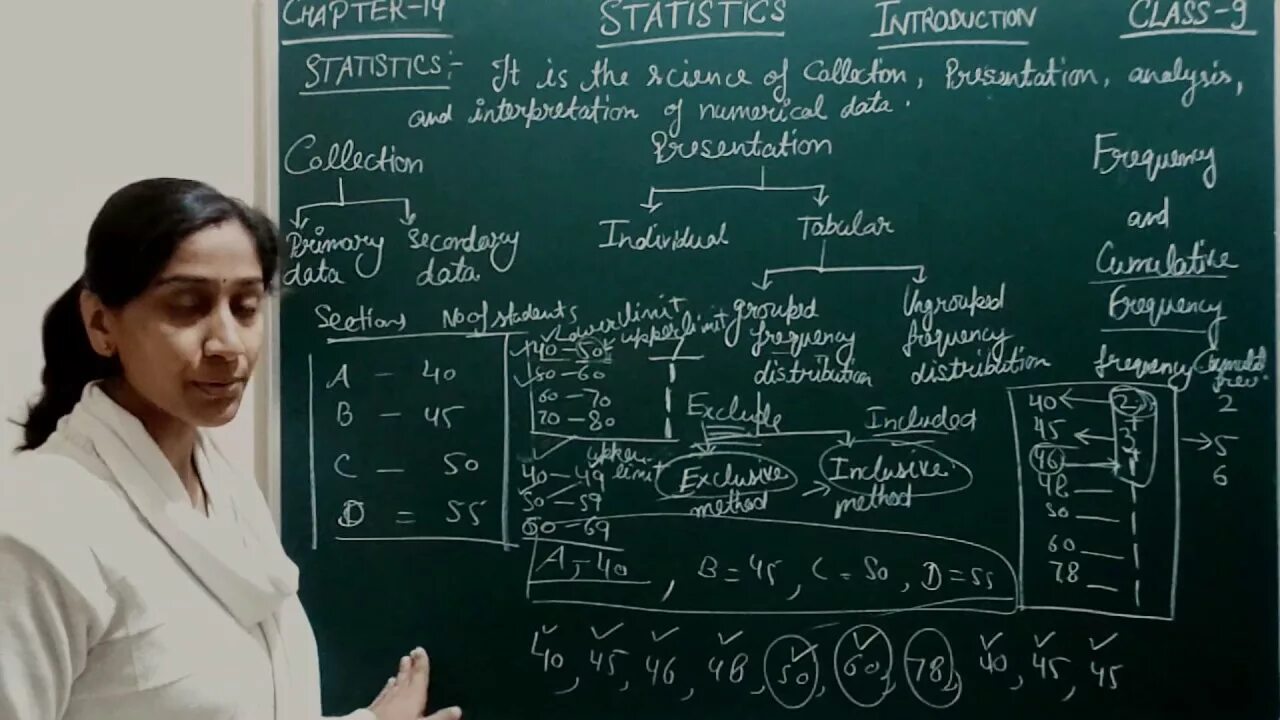 CHAPTER-14 STATISTICS INTRODUCTION CLASS-9
STATISTICS:- It is the science of Collection, Presentation, analysis,
and interpretation of numerical data.
Collection
Primary data
Secondary data
Presentation
Individual
Tabular
grouped frequency distribution
Ungrouped frequency distribution
Exclude
Included
Exclusive method
Inclusive method
Sections No of students
A - 40
B - 45
C - 50
D = 55
Lower limit
upper limit
40-50
50-60
60-70
70-80
upper limit
40-49
50-59
60-69
A, -40, B = 45, C = 50, D = 55
40, 45, 46, 48, 50, 60, 78, 40, 45, 45
Frequency
and
Cumulative
Frequency
frequency
40 2
45 3 5
46 1 6
48 1
50 1
60 1
78 1
2